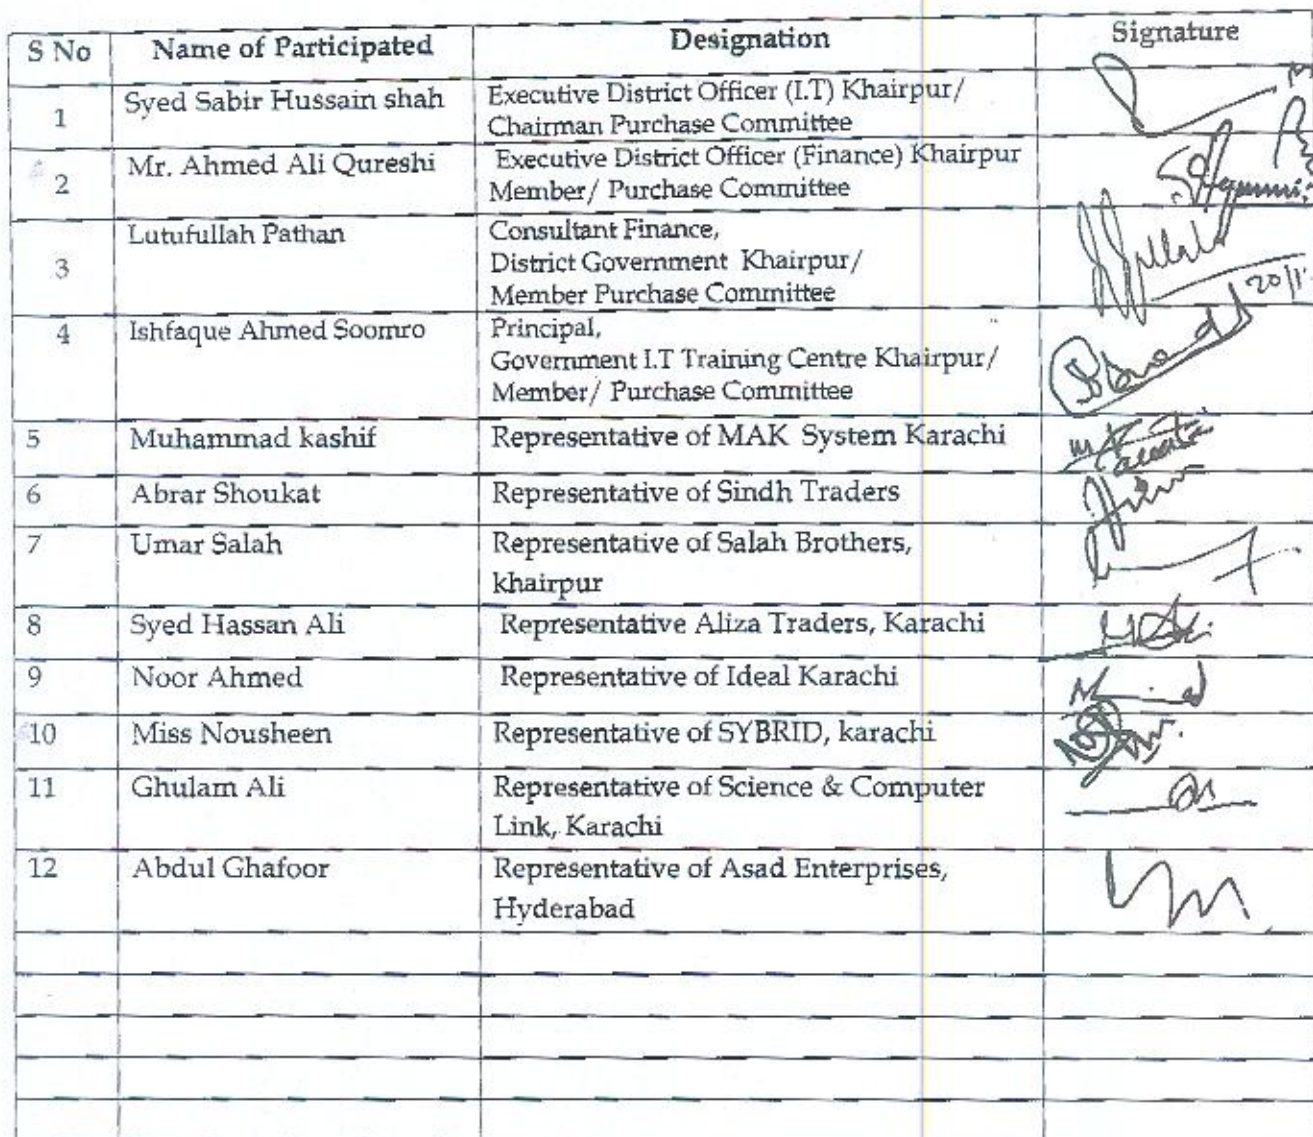 S No Name of Participated Designation Signature
1 Syed Sabir Hussain shah Executive District Officer (I.T) Khairpur/
Chairman Purchase Committee
2 Mr. Ahmed Ali Qureshi Executive District Officer (Finance) Khairpur
Member/ Purchase Committee
3 Lutufullah Pathan Consultant Finance,
District Government Khairpur/
Member Purchase Committee
20/1
4 Ishfaque Ahmed Soomro Principal,
Government I.T Training Centre Khairpur/
Member/ Purchase Committee
5 Muhammad kashif Representative of MAK System Karachi
6 Abrar Shoukat Representative of Sindh Traders
7 Umar Salah Representative of Salah Brothers,
khairpur
8 Syed Hassan Ali Representative Aliza Traders, Karachi
9 Noor Ahmed Representative of Ideal Karachi
10 Miss Nousheen Representative of SYBRID, karachi
11 Ghulam Ali Representative of Science & Computer
Link, Karachi
12 Abdul Ghafoor Representative of Asad Enterprises,
Hyderabad